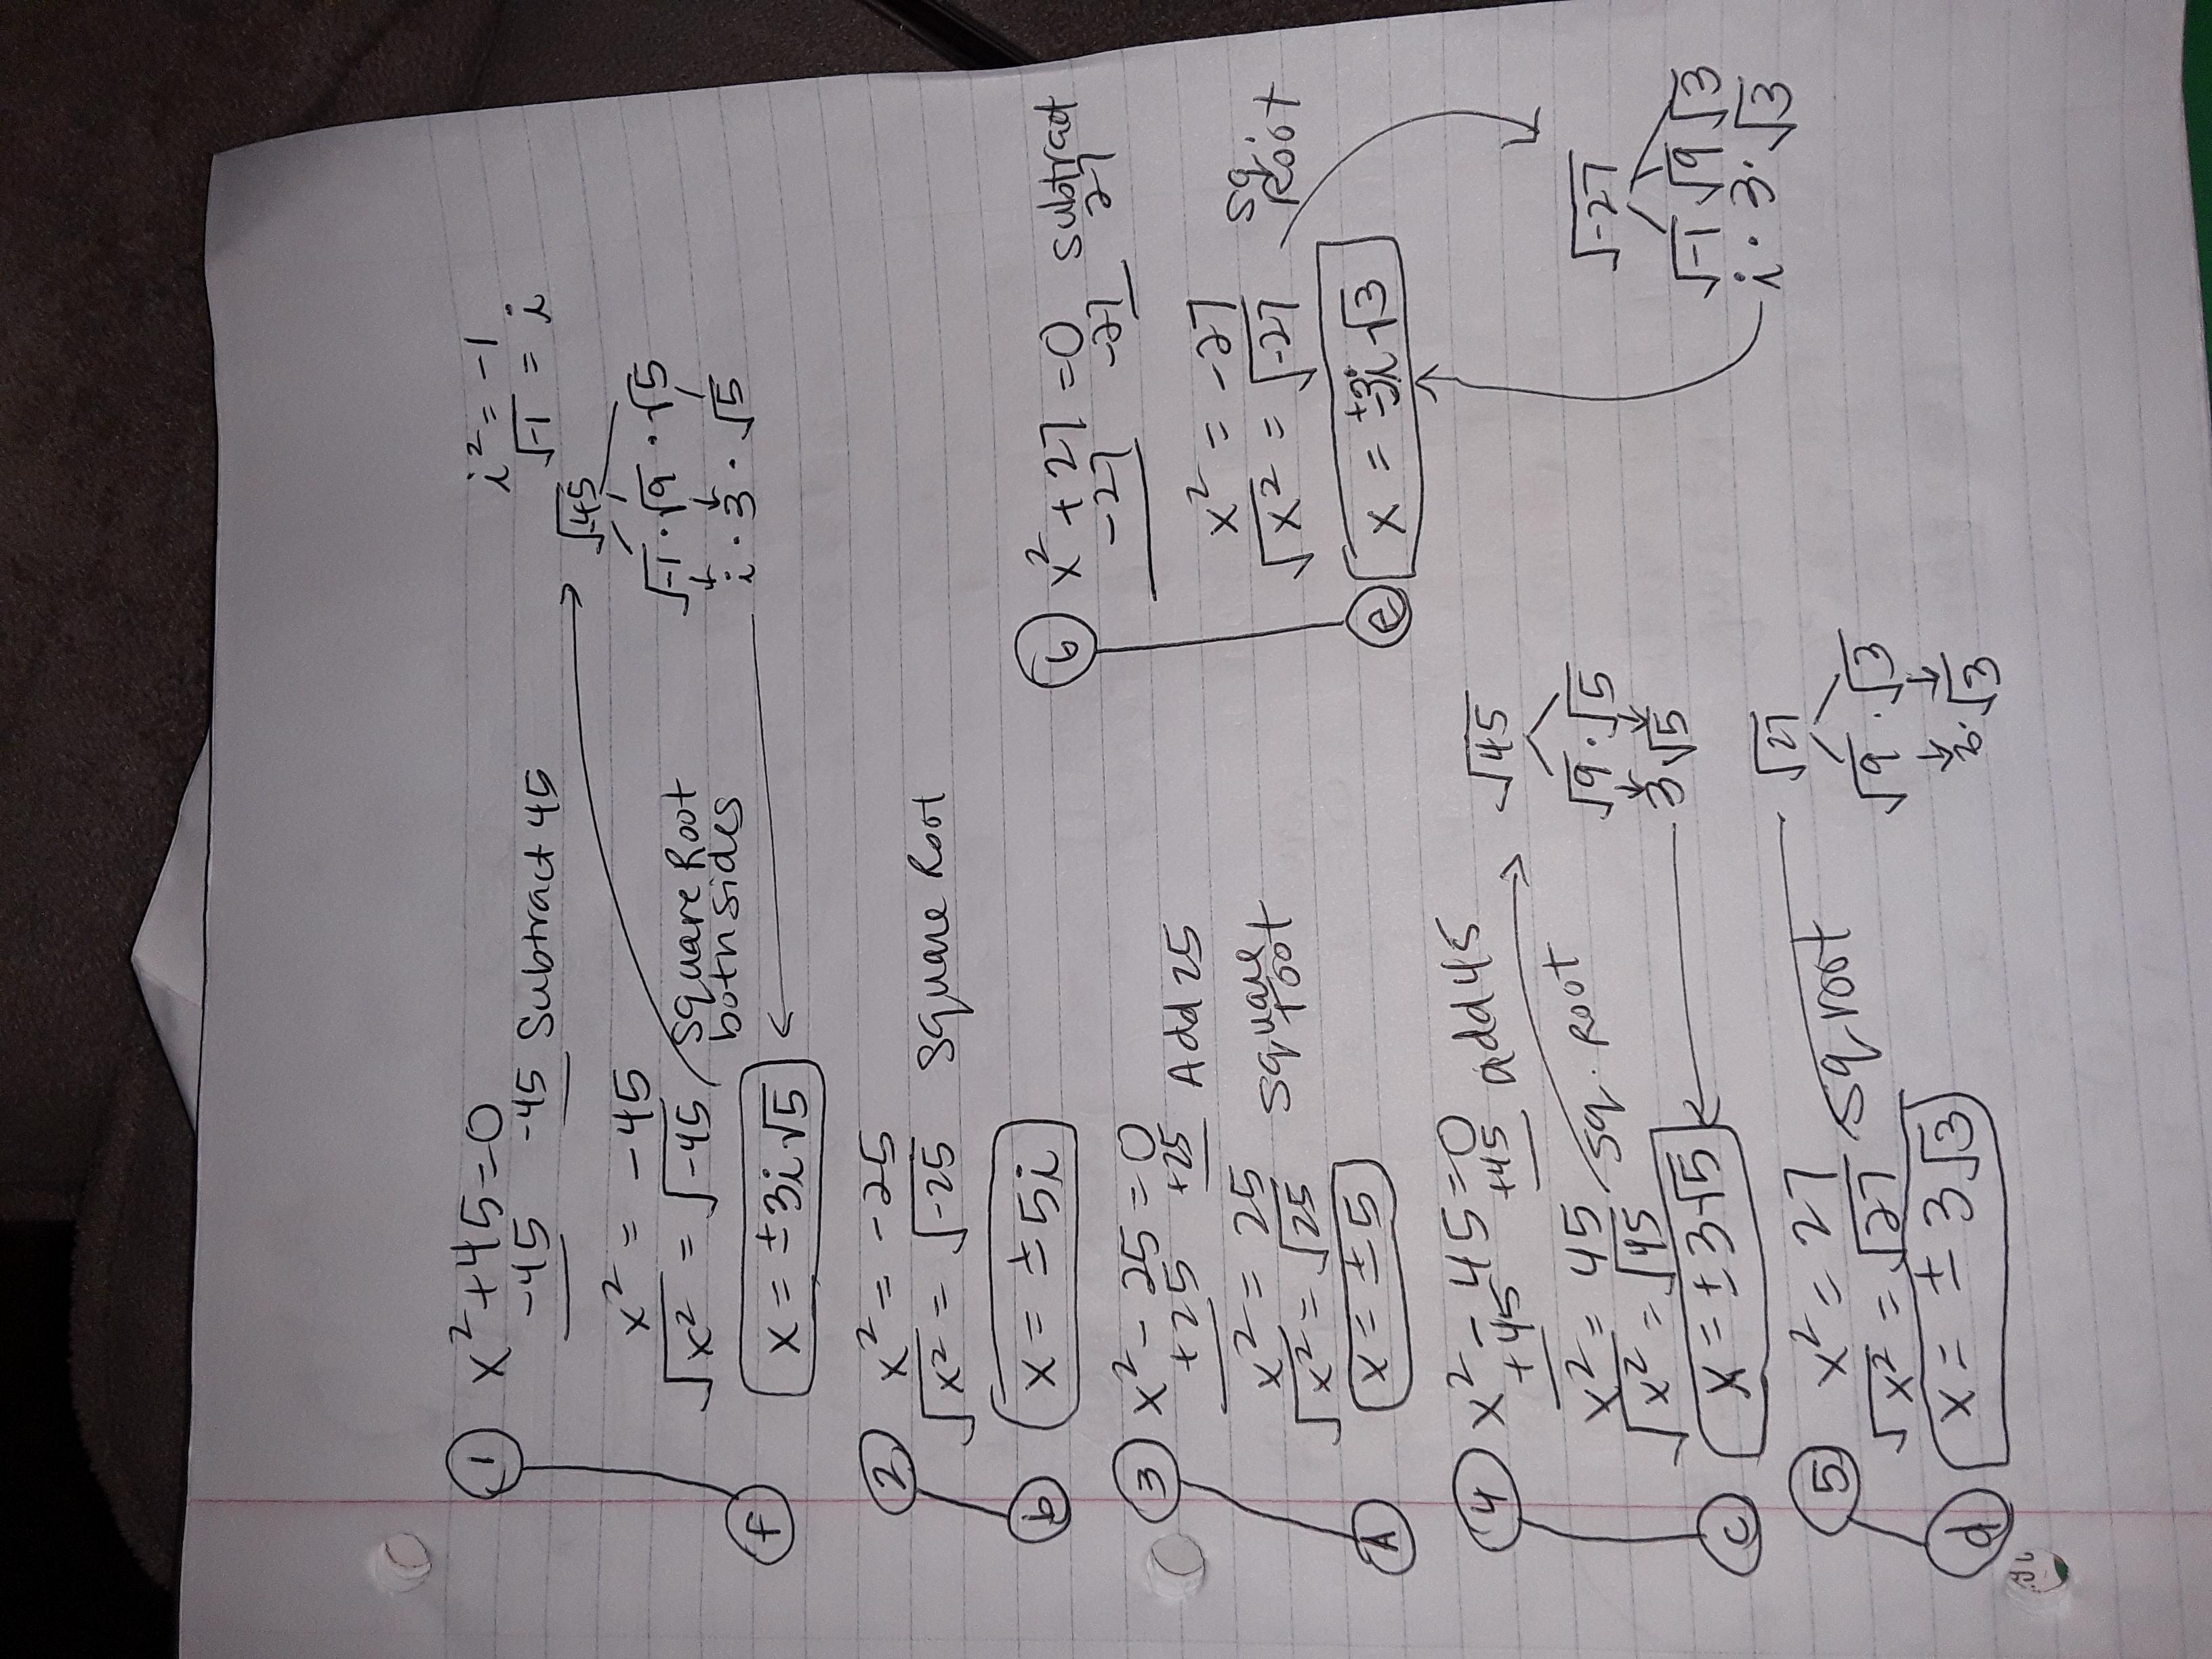 ① x² + 45 = 0
-45 -45 Subtract 45
x² = -45
√x² = √-45 Square Root
both sides
ⓕ x = ± 3i√5
i² = -1
√-1 = i
√-45
√-1 · √9 · √5
i · 3 · √5
② x² = -25
√x² = √-25 Square Root
ⓑ x = ± 5i
③ x² - 25 = 0
+25 +25 Add 25
x² = 25
√x² = √25 Square root
Ⓐ x = ± 5
④ x² - 45 = 0
+45 +45 add 45
x² = 45
√x² = √45 Sq. root
ⓒ x = ± 3√5
√45
√9 · √5
3√5
⑤ x² = 27
√x² = √27 sq root
ⓓ x = ± 3√3
√27
√9 · √3
3 · √3
⑥ x² + 27 = 0 Subtract
-27 -27 27
x² = -27
√x² = √-27 Sq. Root
ⓔ x = ±3i√3
√-27
√-1 √9 √3
i · 3 · √3